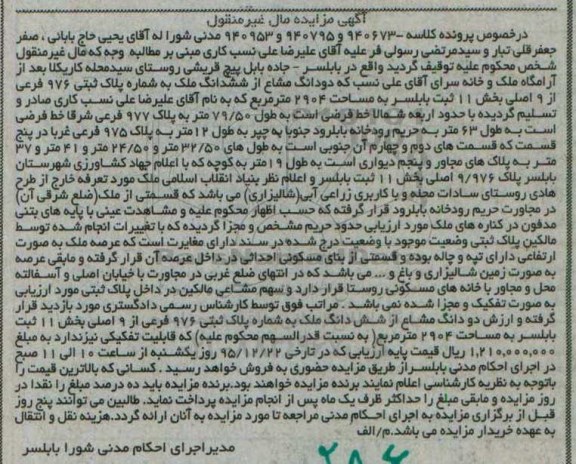 آگهی مزایده مال غیرمنقول
درخصوص پرونده کلاسه ۹۴۰۶۷۳- ۹۴۰۷۹۵ و ۹۴۰۹۵۳ مدنی شورا له آقای یحیی حاج بابائی ، صفر
جعفرقلی تبار و سیدمرتضی رسولی فر علیه آقای علیرضا علی نسب کاری مبنی بر مطالبه وجه که مال غیرمنقول
شخص محکوم علیه توقیف گردید واقع در بابلسر - جاده بابل پیچ قریشی روستای سیدمحله کاریکلا بعد از
آرامگاه ملک و خانه سرای آقای علی نسب که دودانگ مشاع از ششدانگ ملک به شماره پلاک ثبتی ۹۷۶ فرعی
از ۹ اصلی بخش ۱۱ ثبت بابلسر به مساحت ۲۹۰۴ مترمربع که به نام آقای علیرضا علی نسب کاری صادر و
تسلیم گردیده با حدود اربعه شمالا خط فرضی است به طول ۷۹/۵۰ متر به پلاک ۹۷۷ فرعی شرقا خط فرضی
است به طول ۶۳ متر به حریم رودخانه بابلرود جنوبا به چپر به طول ۱۲متر به پلاک ۹۷۵ فرعی غربا در پنج
قسمت که قسمت های دوم و چهارم آن جنوبی است به طول های ۳۲/۵۰ متر و ۲۴/۵۰ متر و ۴۱ متر و ۳۷
متر به پلاک های مجاور و پنجم دیواری است به طول ۱۹متر به کوچه که با اعلام جهاد کشاورزی شهرستان
بابلسر پلاک ۹/۹۷۶ اصلی بخش ۱۱ ثبت بابلسر و اعلام نظر بنیاد انقلاب اسلامی ملک مورد تعرفه خارج از طرح
هادی روستای سادات محله و با کاربری زراعی آبی(شالیزاری) می باشد که قسمتی از ملک(ضلع شرقی آن)
در مجاورت حریم رودخانه بابلرود قرار گرفته که حسب اظهار محکوم علیه و مشاهدت عینی با پایه های بتنی
مدفون در کناره های ملک مورد ارزیابی حدود حریم مشخص و مجزا گردیده که با تغییرات انجام شده توسط
مالکین پلاک ثبتی وضعیت موجود با وضعیت درج شده در سند دارای مغایرت است که عرصه ملک به صورت
ارتفاعی دارای تپه و چاله بوده و قسمتی از بنای مسکونی احداثی در داخل عرصه آن قرار گرفته و مابقی عرصه
به صورت زمین شالیزاری و باغ و... می باشد که در انتهای ضلع غربی در مجاورت با خیابان اصلی و آسفالته
محل و مجاور با خانه های مسکونی روستا قرار دارد و سهم مشاعی مالکین در داخل پلاک ثبتی مورد ارزیابی
به صورت تفکیک و مجزا شده نمی باشد . مراتب فوق توسط کارشناس رسمی دادگستری مورد بازدید قرار
گرفته و ارزش دو دانگ مشاع از شش دانگ ملک به شماره پلاک ثبتی ۹۷۶ فرعی از ۹ اصلی بخش ۱۱ ثبت
بابلسر به مساحت ۲۹۰۴ مترمربع( به نسبت قدرالسهم محکوم علیه) که قابلیت تفکیکی نیزندارد به مبلغ
۱,۲۱۰,۰۰۰,۰۰۰ ریال قیمت پایه ارزیابی که در تارخی ۹۵/۱۲/۲۲ روز یکشنبه از ساعت ۱۰ الی ۱۱ صبح
در اجرای احکام مدنی بابلسراز طریق مزایده حضوری به فروش خواهد رسید . کسانی که بالاترین قیمت را
باتوجه به نظریه کارشناسی اعلام نمایند برنده مزایده خواهند بود.برنده مزایده باید ده درصد مبلغ را نقدا در
روز مزایده و مابقی مبلغ را حداکثر ظرف یک ماه پس از انجام مزایده پرداخت نماید. طالبین می توانند پنج روز
قبل از برگزاری مزایده به اجرای احکام مدنی مراجعه تا مورد مزایده به آنان ارائه گردد.هزینه نقل و انتقال
به عهده خریدار مزایده می باشد.م/الف
مدیراجرای احکام مدنی شورا بابلسر
۲۸۶